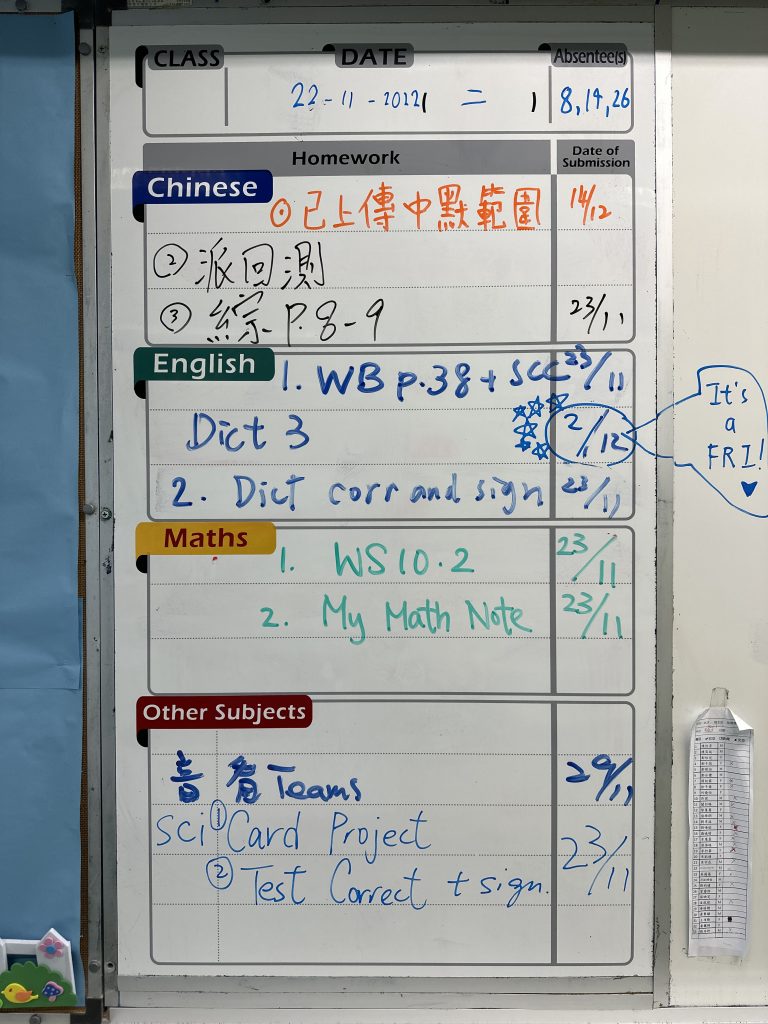 CLASS DATE Absentee(s)
22-11-2022 ( 二 ) 8, 14, 26
Homework Date of Submission
Chinese
① 已上傳中默範圍 14/12
② 派回測
③ 綜 P.8-9 23/11
English
1. WB p.38 + SCC 23/11
Dict 3 2/12
It's
a
FRI!
2. Dict corr and sign 23/11
Maths
1. WS 10.2 23/11
2. My Math Note 23/11
Other Subjects
音 看 Teams 29/11
Sci ① Card Project
② Test Correct + sign. 23/11